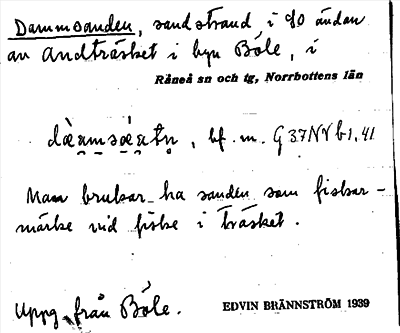 Dammsanden, sandstrand i SO ändan
av Andträsket i byn Böle, i
Råneå sn och tg, Norrbottens län
bf. m. G37NVb1,41
Man brukar ha sanden som fiskar-
märke vid fiske i träsket.
Uppg. från Böle.
EDVIN BRÄNNSTRÖM 1939